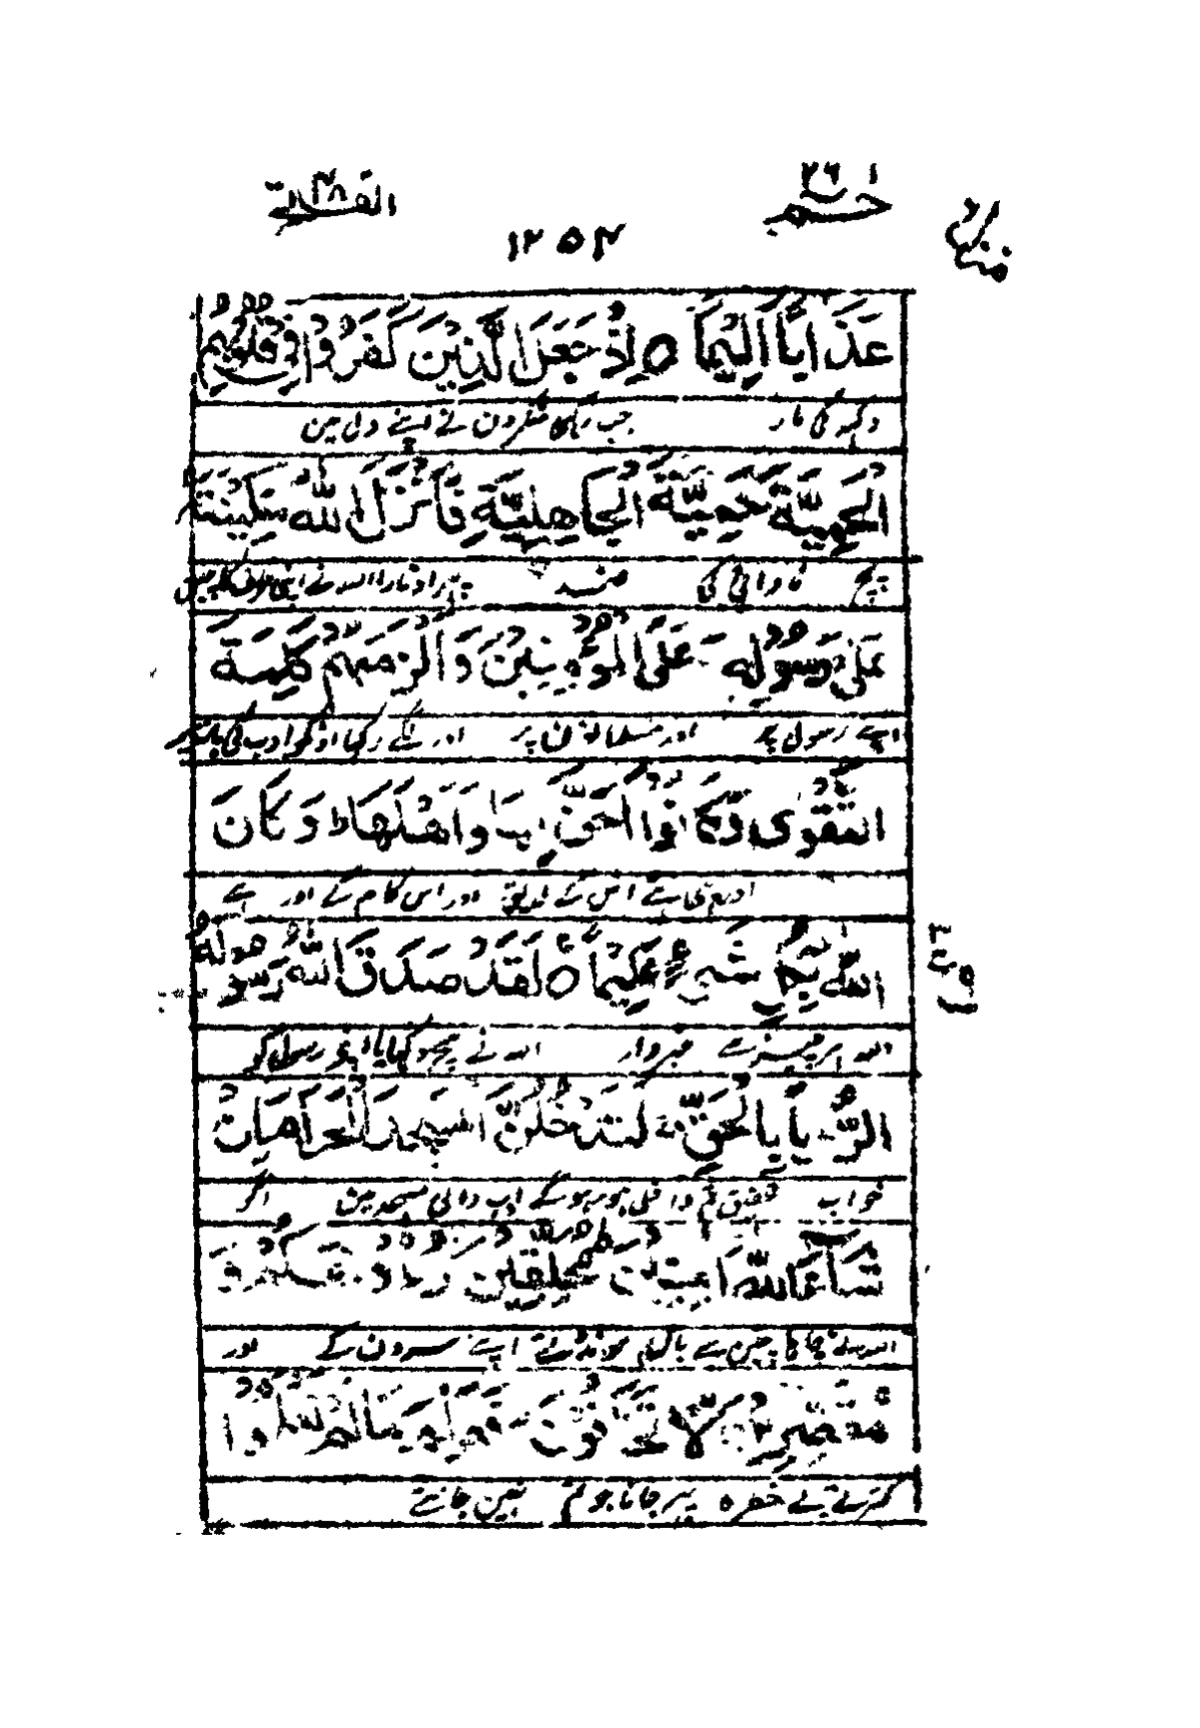 حٰم ٢٦ الفتح ٤٨
١٢٥٤
عَذَابًا اَلِيْمًا ○ اِذْ جَعَلَ الَّذِيْنَ كَفَرُوْا فِيْ قُلُوْبِهِمُ
دکھہ کی مار جب رکھی منکرون نے اپنے دل مین
الْحَمِيَّةَ حَمِيَّةَ الْجَاهِلِيَّةِ فَاَنْزَلَ اللّٰهُ سَكِيْنَتَهٗ
پچ نادانی کی ضد پہر اوتارا اللہ نے اپنی طرف کا چین
عَلٰى رَسُوْلِهٖ وَعَلَى الْمُؤْمِنِيْنَ وَاَلْزَمَهُمْ كَلِمَةَ
اپنے رسول پر اور مسلمانون پر اور لگے رکہا اونکو ادب کی بات پر
التَّقْوٰى وَكَانُوْا اَحَقَّ بِهَا وَاَهْلَهَا ط وَكَانَ
اور یہی تہے اس کے لایق اور اس کام کے اور ہے
اللّٰهُ بِكُلِّ شَيْءٍ عَلِيْمًا ○ لَقَدْ صَدَقَ اللّٰهُ رَسُوْلَهُ
اللہ ہر چیز سے خبردار اللہ نے سچ دکہایا اپنے رسول کو
الرُّءْيَا بِالْحَقِّ لَتَدْخُلُنَّ الْمَسْجِدَ الْحَرَامَ اِنْ
خواب تحقیق تم داخل ہو رہوگے ادب والی مسجد مین اگر
شَآءَ اللّٰهُ اٰمِنِيْنَ مُحَلِّقِيْنَ رُءُوْسَكُمْ وَ
اللہ نے چاہا چین سے بال مونڈتے اپنے سرون کے اور
مُقَصِّرِيْنَ لَا تَخَافُوْنَ فَعَلِمَ مَا لَمْ تَعْلَمُوْا
کترتے بے خطرہ پہر جانا جو تم نہین جانتے